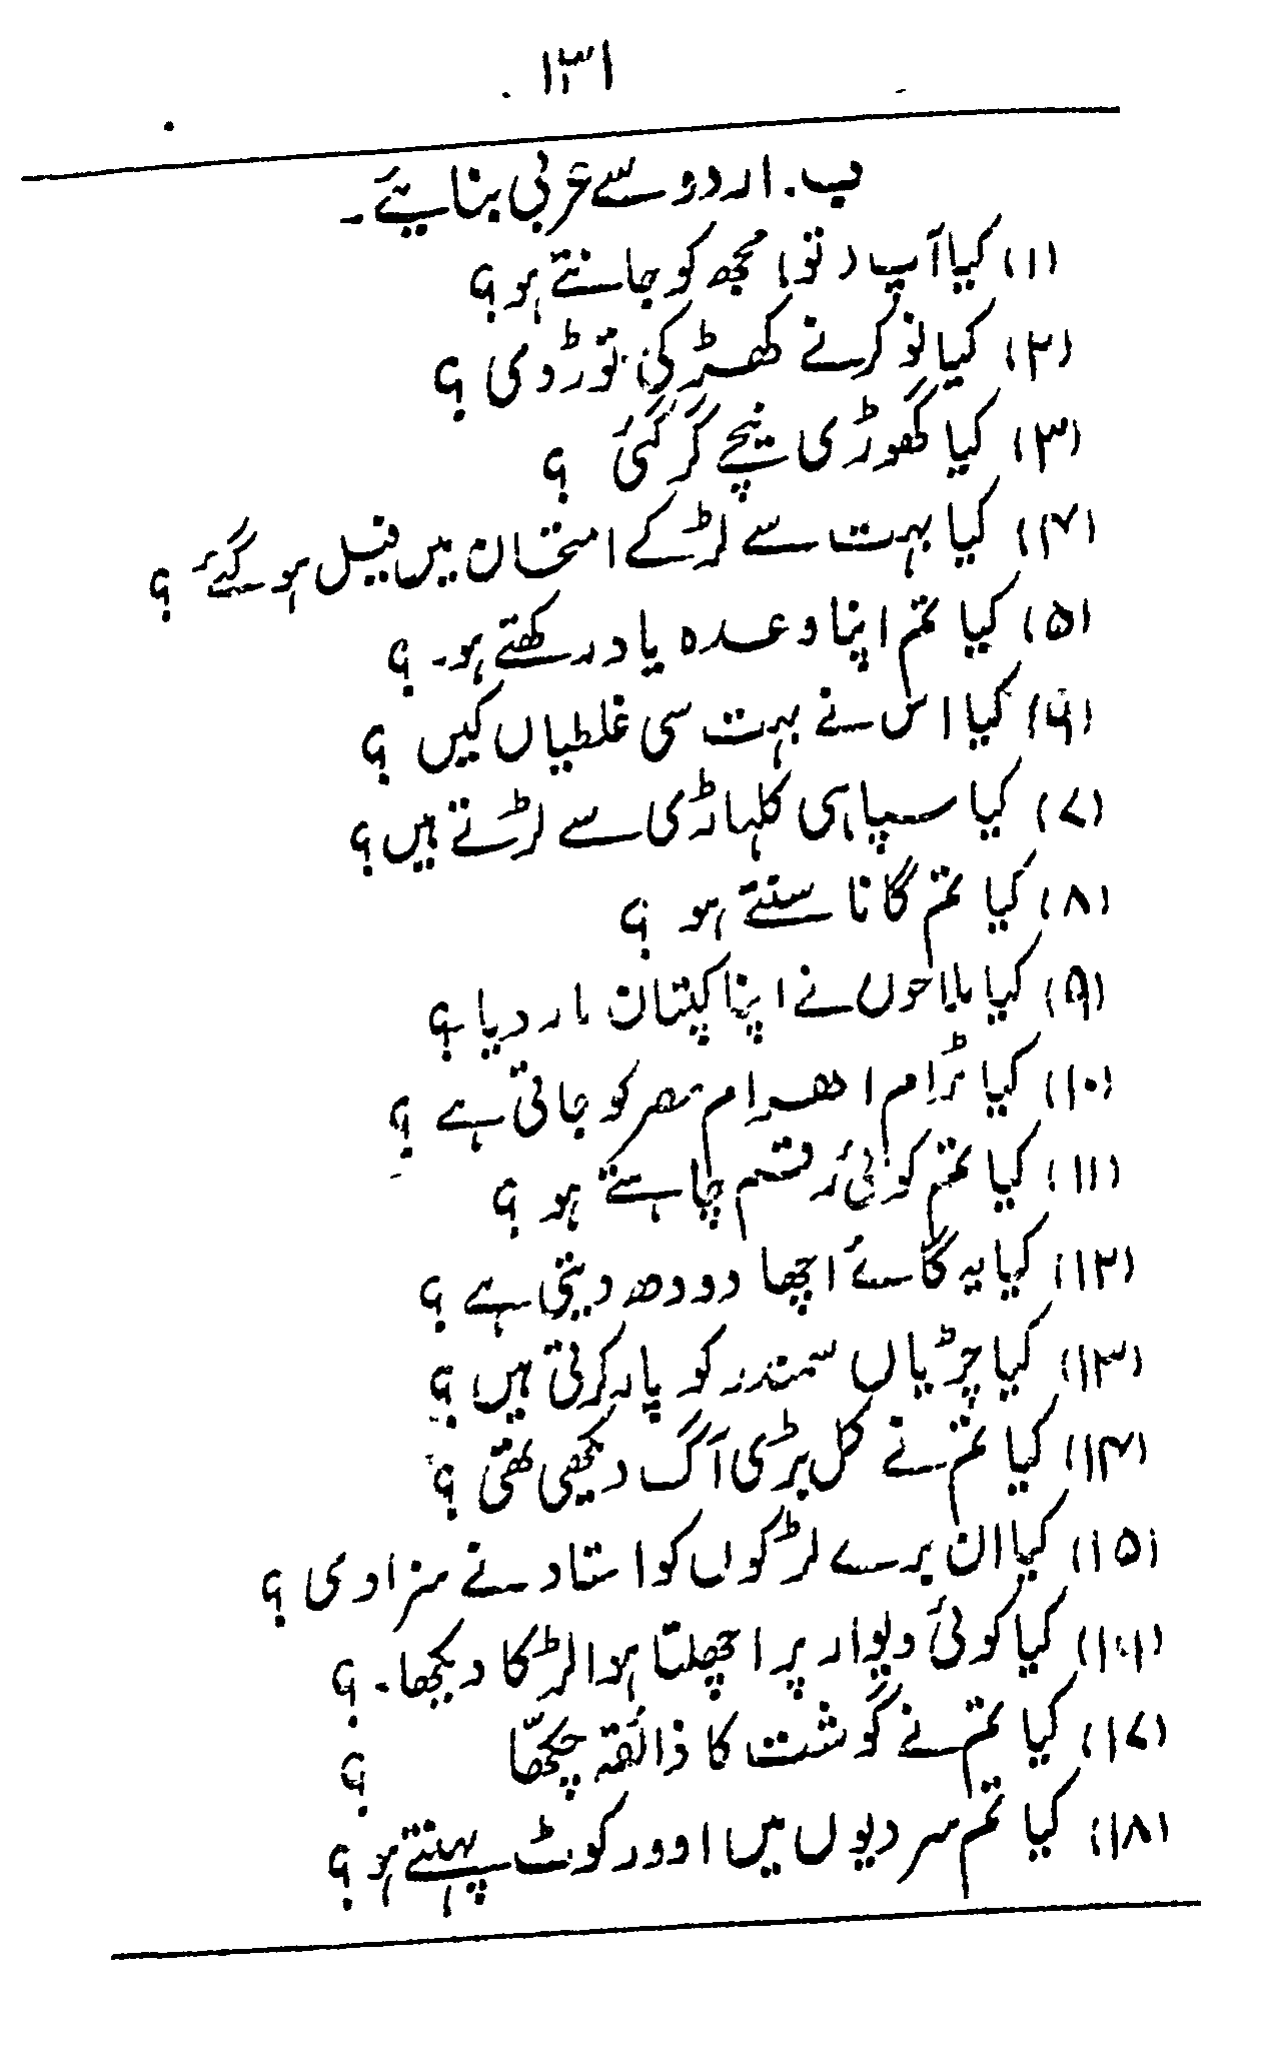 ۱۳۱
ب. اردو سے عربی بنائیے۔
(۱) کیا آپ (تو) مجھ کو جانتے ہو؟
(۲) کیا نوکر نے کھڑکی توڑ دی ؟
(۳) کیا گھوڑی نیچے گر گئی ؟
(۴) کیا بہت سے لڑکے امتحان میں فیل ہو گئے ؟
(۵) کیا تم اپنا وعدہ یاد رکھتے ہو۔ ؟
(۶) کیا اس نے بہت سی غلطیاں کیں ؟
(۷) کیا سپاہی کلہاڑی سے لڑتے ہیں؟
(۸) کیا تم گانا سنتے ہو ؟
(۹) کیا ملاحوں نے اپنا کپتان مار دیا ؟
(۱۰) کیا ٹرام اھرام مصر کو جاتی ہے ؟
(۱۱) کیا تم کوئی رقم چاہتے ہو ؟
(۱۲) کیا یہ گائے اچھا دودھ دیتی ہے ؟
(۱۳) کیا چڑیاں سمندر کو پار کرتی ہیں ؟
(۱۴) کیا تم نے کل بڑی آگ دیکھی تھی ؟
(۱۵) کیا ان برے لڑکوں کو استاد نے سزا دی ؟
(۱۶) کیا کوئی دیوار پر اچھلتا ہوا لڑکا دیکھا۔ ؟
(۱۷) کیا تم نے گوشت کا ذائقہ چکھّا ؟
(۱۸) کیا تم سردیوں میں اوورکوٹ پہنتے ہو ؟